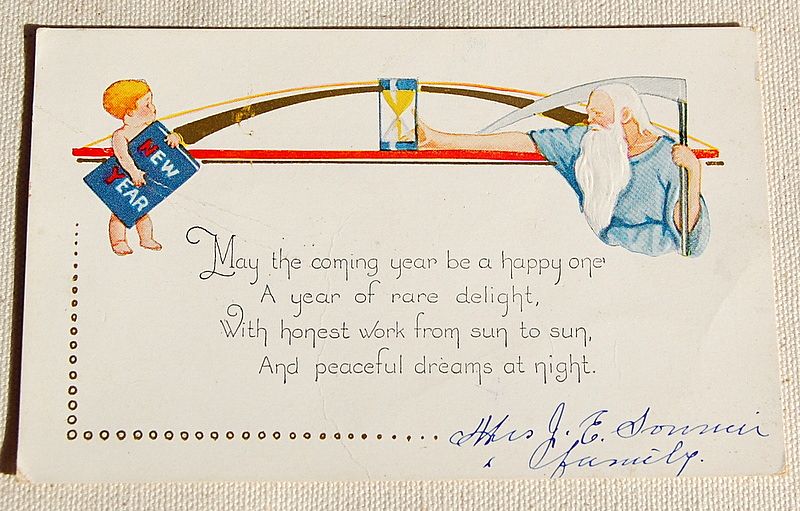 NEW
YEAR
May the coming year be a happy one
A year of rare delight,
With honest work from sun to sun,
And peaceful dreams at night.
Mrs J. E. Sonnier
& family.